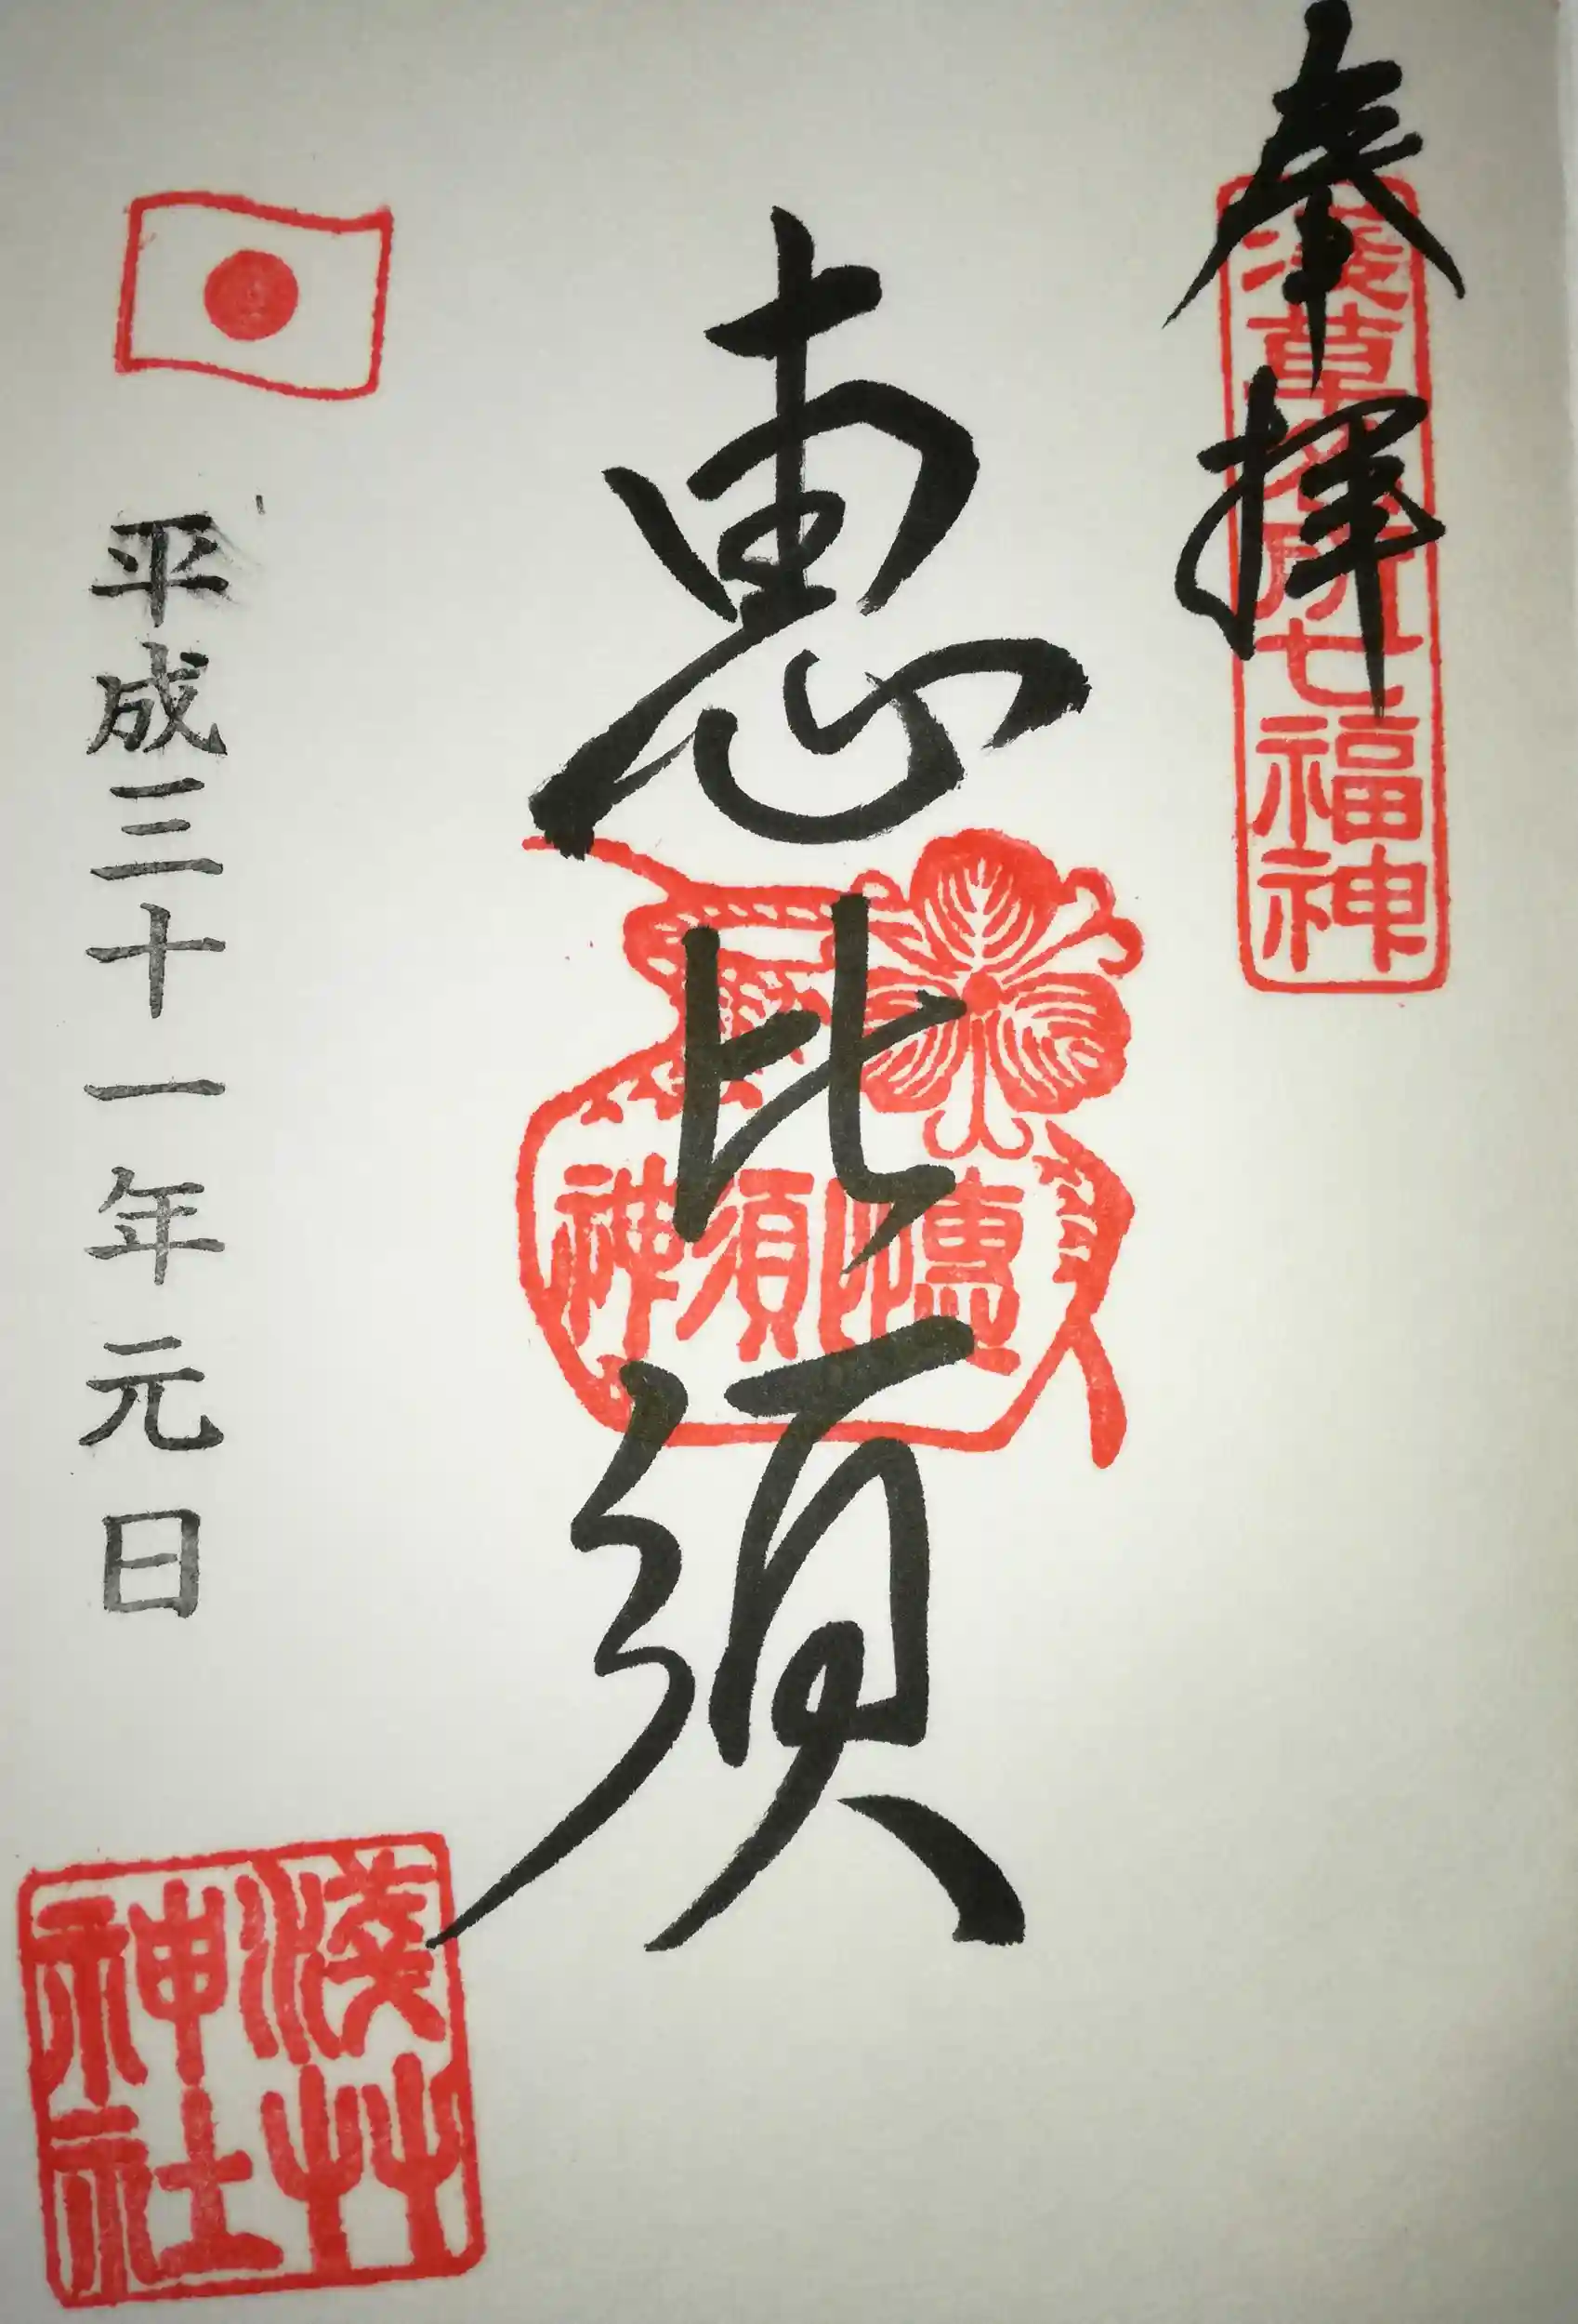 奉拝
浅草名所七福神
恵比須
恵比須神
平成三十一年元日
浅草神社